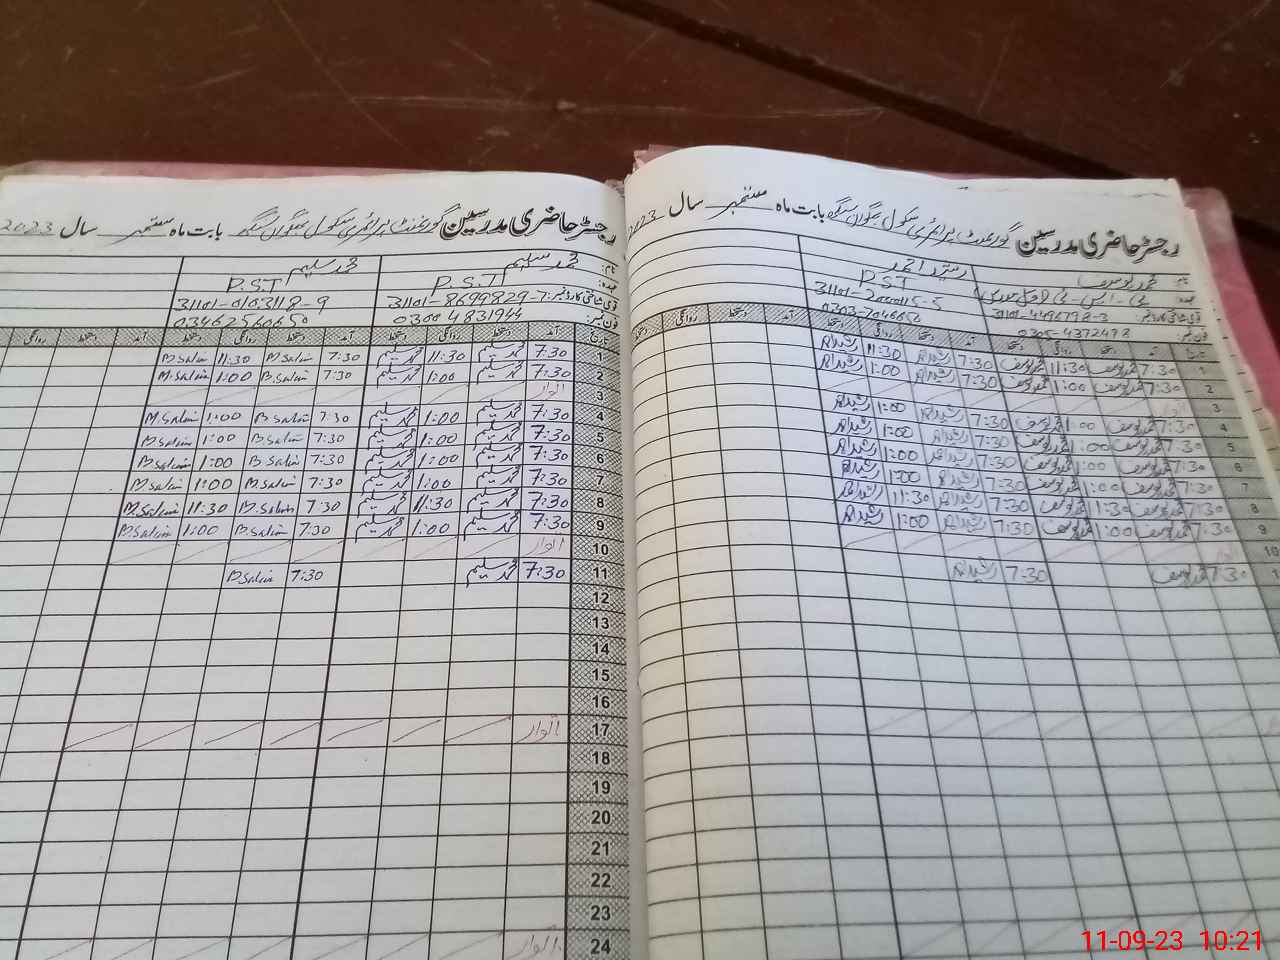 رجسٹر حاضری مدرسین گورنمنٹ پرائمری سکول بابت ماہ ستمبر سال 2023
نام: محمد یوسف رشید احمد
عہدہ: PST
قومی شناختی کارڈ نمبر: 31101-4496798-3
فون نمبر: 0305-4372498 0303-7046656
تاریخ آمد دستخط روانگی دستخط آمد دستخط روانگی دستخط آمد دستخط روانگی دستخط
1 7:30 محمد یوسف 11:30 محمد یوسف 7:30 رشید احمد 11:30 رشید احمد
2 7:30 محمد یوسف 1:00 محمد یوسف 7:30 رشید احمد 1:00 رشید احمد
3 اتوار
4 7:30 محمد یوسف 1:00 محمد یوسف 7:30 رشید احمد 1:00 رشید احمد
5 7:30 محمد یوسف 1:00 محمد یوسف 7:30 رشید احمد 1:00 رشید احمد
6 7:30 محمد یوسف 1:00 محمد یوسف 7:30 رشید احمد 1:00 رشید احمد
7 7:30 محمد یوسف 1:00 محمد یوسف 7:30 رشید احمد 1:00 رشید احمد
8 7:30 محمد یوسف 11:30 محمد یوسف 7:30 رشید احمد 11:30 رشید احمد
9 7:30 محمد یوسف 1:00 محمد یوسف 7:30 رشید احمد 1:00 رشید احمد
10 اتوار
7:30 محمد یوسف 7:30 رشید احمد
رجسٹر حاضری مدرسین گورنمنٹ پرائمری سکول بابت ماہ ستمبر سال 2023
نام: محمد سلیم محمد سلیم
عہدہ: P.S.T P.S.T
قومی شناختی کارڈ نمبر: 31101-8699829-7 31101-0103118-9
فون نمبر: 03004831944 03462560650
تاریخ آمد دستخط روانگی دستخط آمد دستخط روانگی دستخط آمد دستخط روانگی
1 7:30 محمد سلیم 11:30 محمد سلیم 7:30 M.Salim 11:30 M.Salim
2 7:30 محمد سلیم 1:00 محمد سلیم 7:30 M.Salim 1:00 M.Salim
3 اتوار
4 7:30 محمد سلیم 1:00 محمد سلیم 7:30 M.Salim 1:00 M.Salim
5 7:30 محمد سلیم 1:00 محمد سلیم 7:30 M.Salim 1:00 M.Salim
6 7:30 محمد سلیم 1:00 محمد سلیم 7:30 M.Salim 1:00 M.Salim
7 7:30 محمد سلیم 1:00 محمد سلیم 7:30 M.Salim 1:00 M.Salim
8 7:30 محمد سلیم 11:30 محمد سلیم 7:30 M.Salim 11:30 M.Salim
9 7:30 محمد سلیم 1:00 محمد سلیم 7:30 M.Salim 1:00 M.Salim
10 اتوار
11 7:30 محمد سلیم 7:30 M.Salim
12
13
14
15
16
17 اتوار
18
19
20
21
22
23
24 اتوار
11-09-23 10:21